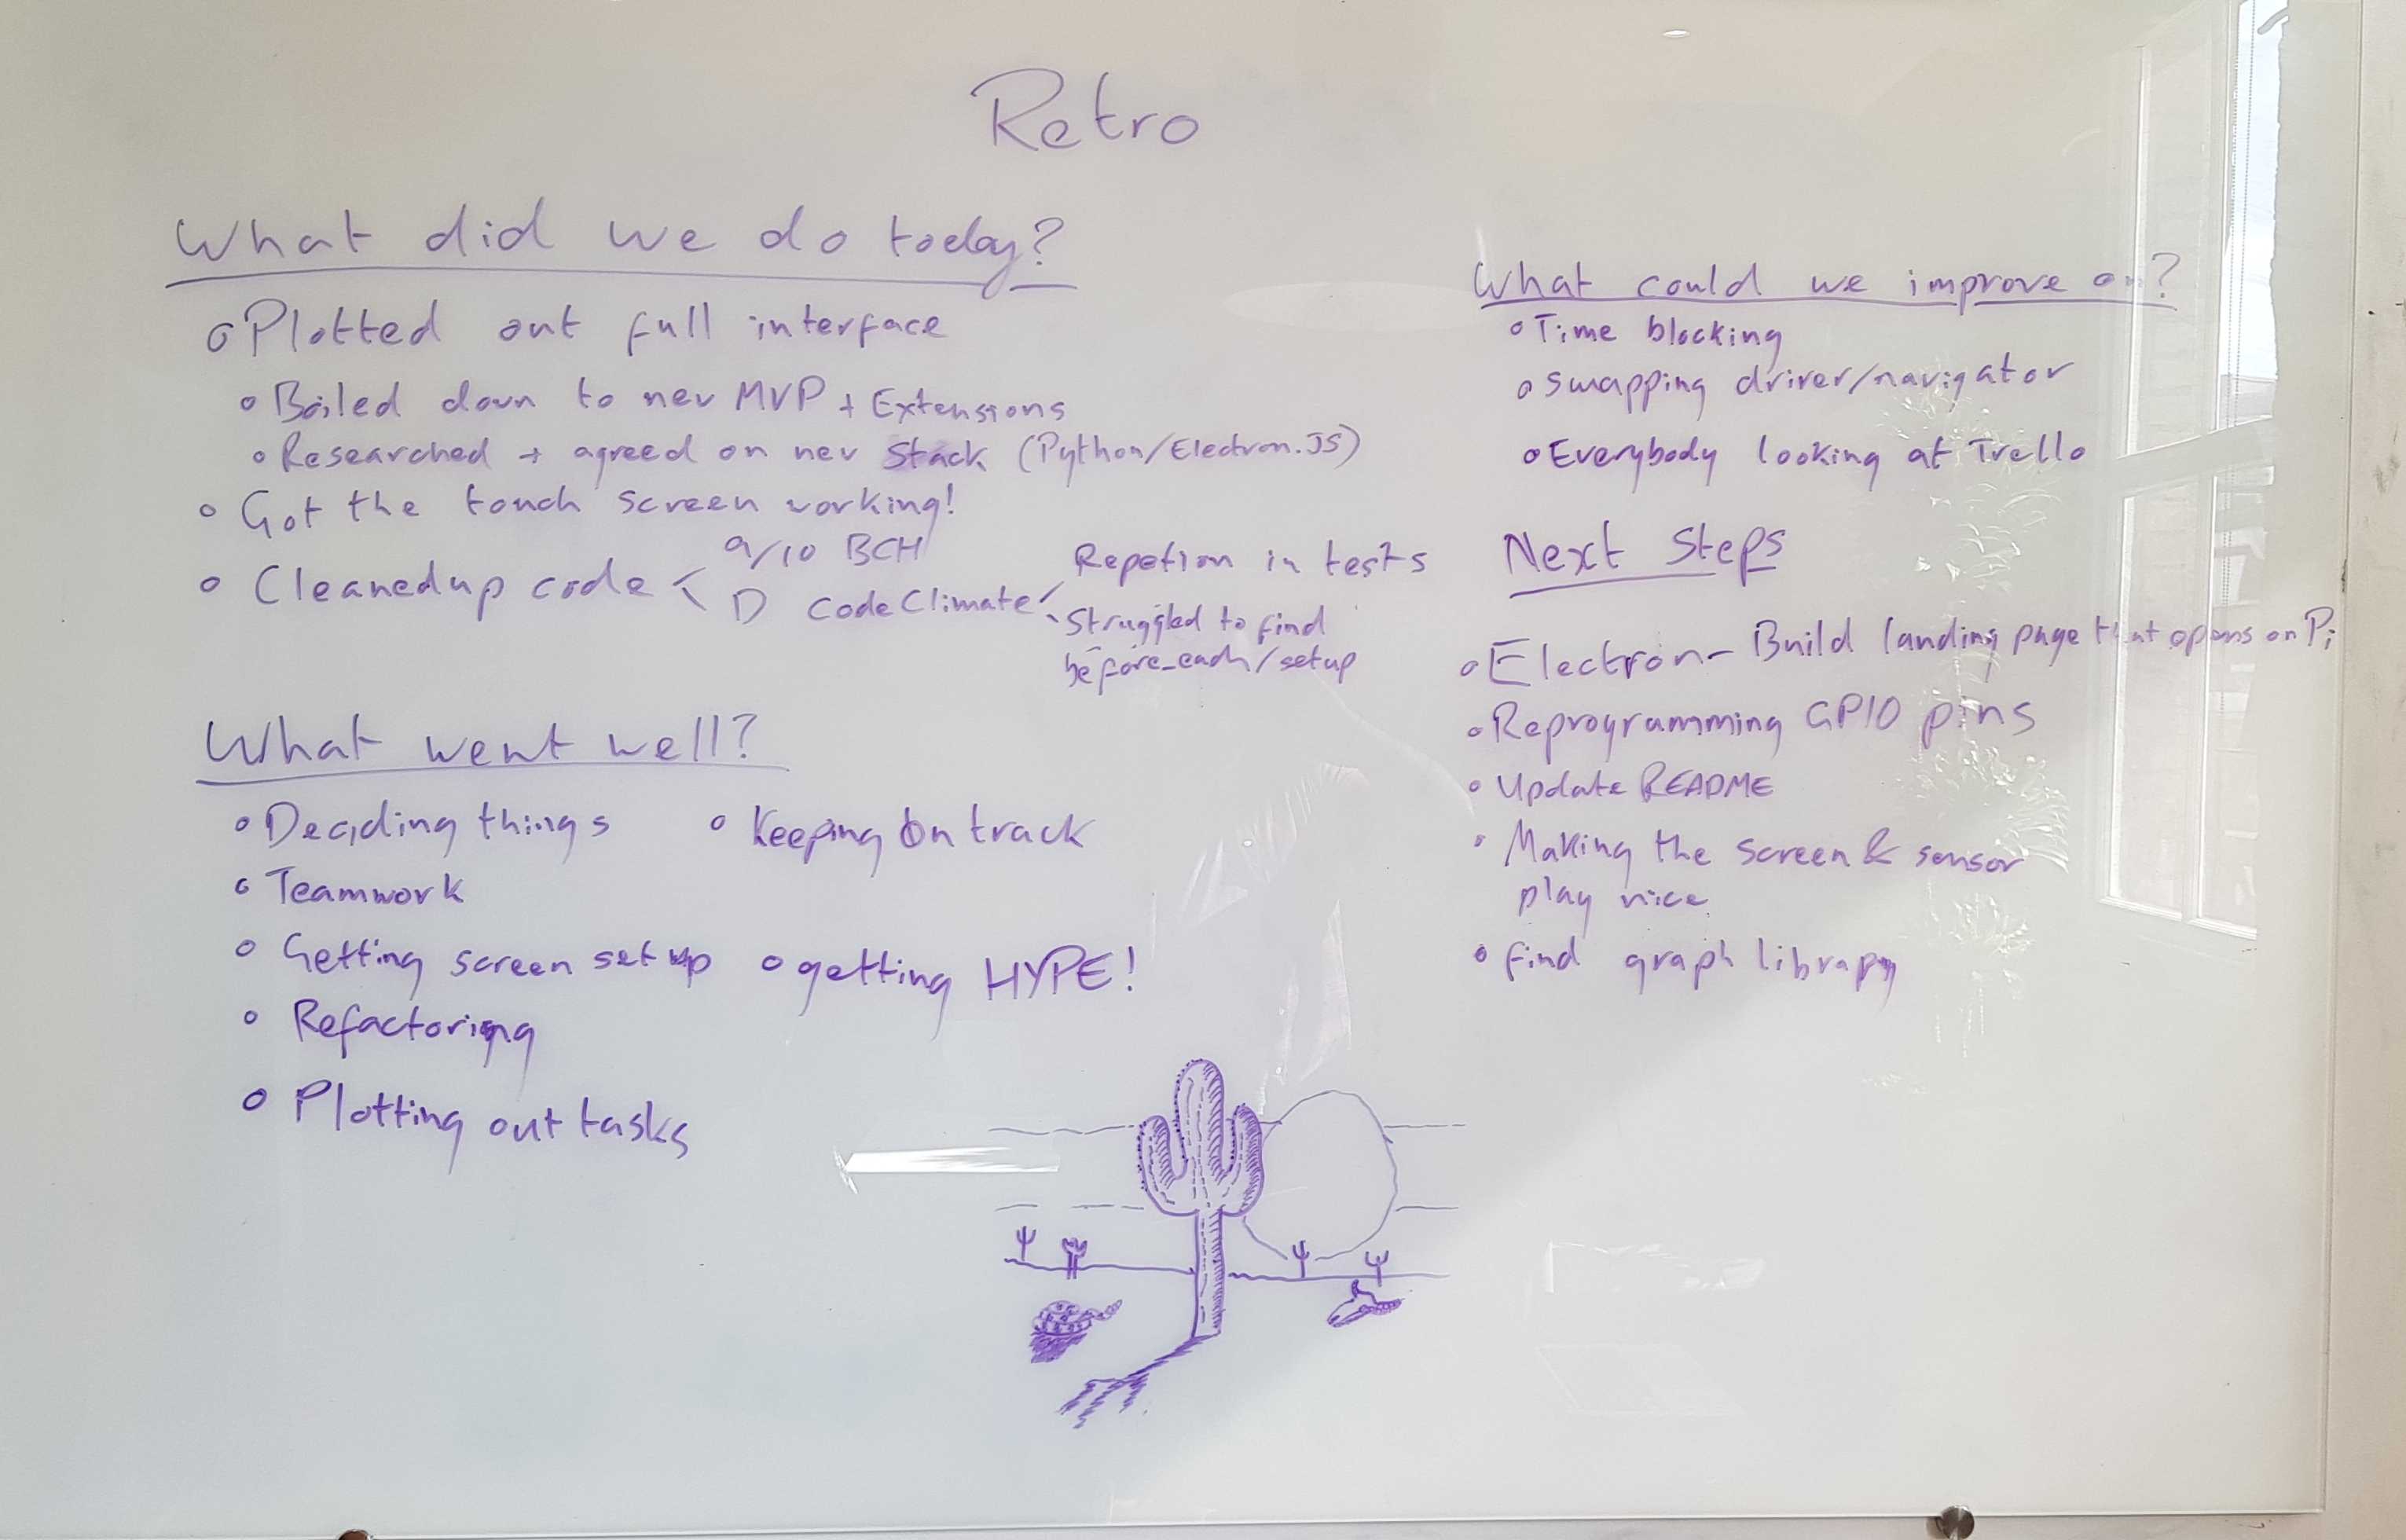 Retro
What did we do today?
Plotted out full interface
Boiled down to new MVP + Extensions
Researched + agreed on new Stack (Python/Electron.JS)
Got the touch screen working!
Cleanedup code < 9/10 BCH
D CodeClimate
Repetion in tests
Struggled to find
before_each/setup
What went well?
Deciding things
Keeping On track
Teamwork
Getting screen set up
getting HYPE!
Refactoring
Plotting out tasks
What could we improve on?
Time blocking
Swapping driver/navigator
Everybody looking at Trello
Next Steps
Electron - Build landing page that opens on Pi
Reprogramming GPIO pins
Update README
Making the screen & sensor
play nice
find graph library